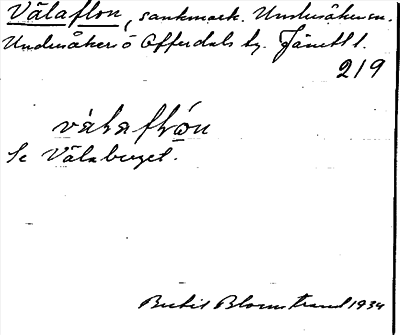 Välaflon, sankmark. Undersåkers sn.
Undersåker o Offerdals tg. Jämtl l.
219
vàlaflòn
Se Välaberget.
Bertil Blomstrand 1934